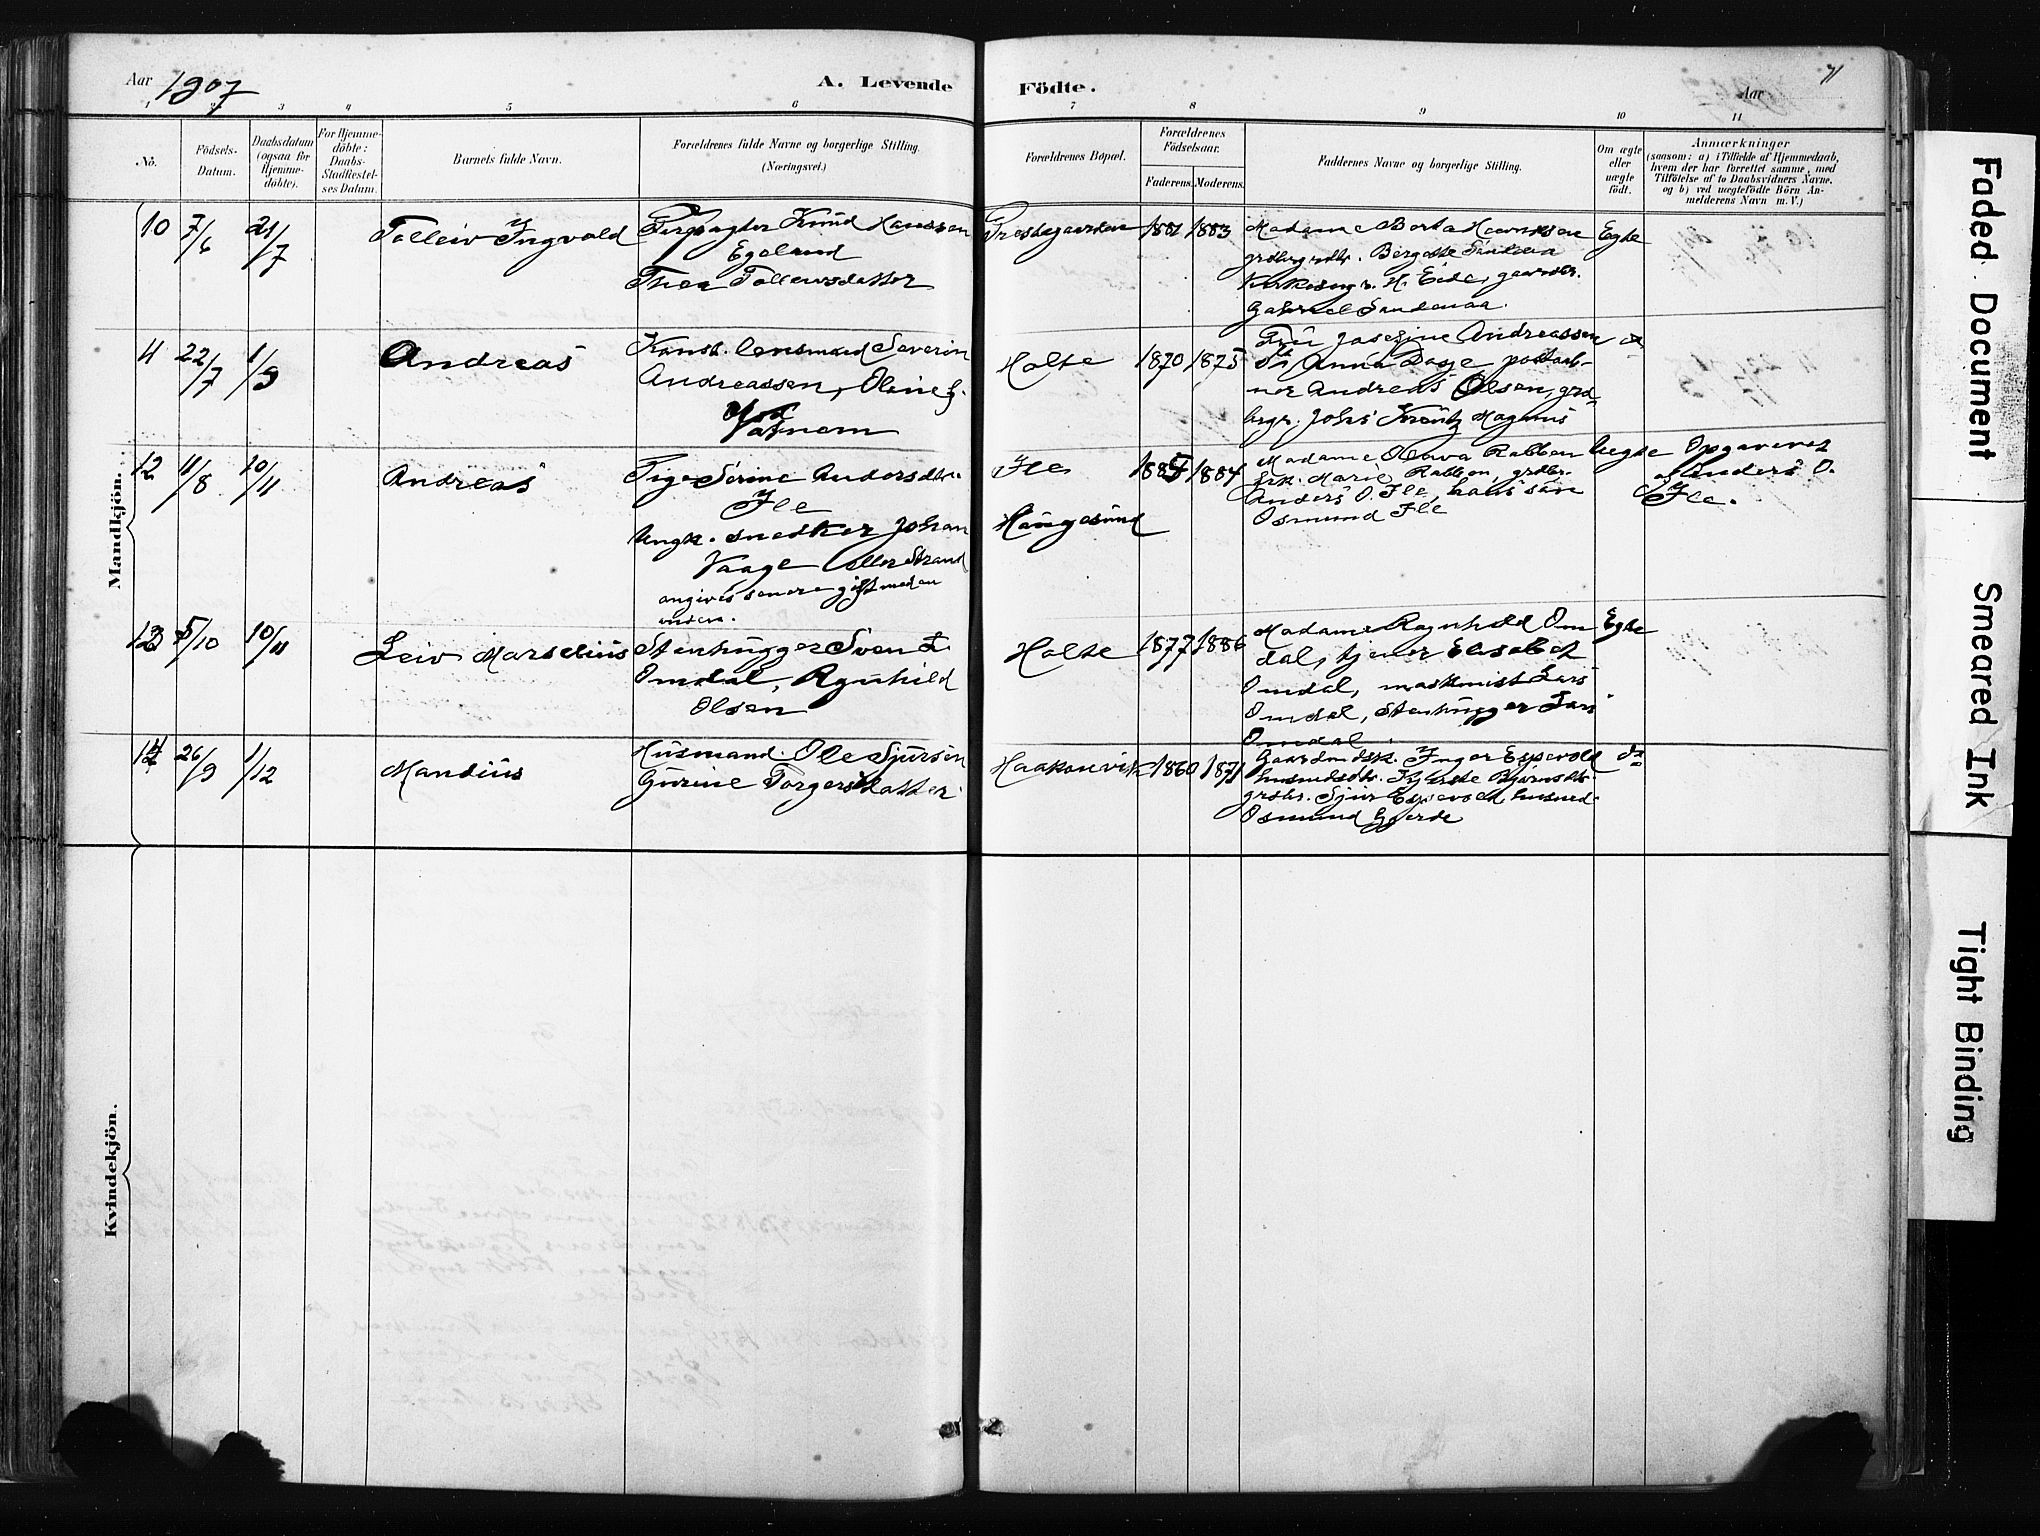 Aar 1907
A. Levende
Födte.
71
Aar
1 2 3 4 5 6 7 8 9 10 11
No.
Födsels-
Datum.
Daabsdatum
(ogsaa for
Hjemme-
döbte).
For Hjemme-
döbte:
Daabs-
Stadfæstel-
ses Datum.
Barnets fulde Navn.
Forældrenes fulde Navne og borgerlige Stilling.
(Næringsvei.)
Forældrenes Bopæl.
Forældrenes
Födselsaar.
Faderens.
Moderens.
Faddernes Navne og borgerlige Stilling.
Om ægte
eller
uægte
födt.
Anmærkninger
(saasom: a) i Tilfælde af Hjemmedaab,
hvem der har forrettet samme, med
Tilföielse af to Daabsvidners Navne,
og b) ved uægtefödte Börn An-
melderens Navn m. V.)
Mandkjön.
10 7/6 21/7 Tolleiv Ingvald
Knud Hanssen
Egeland
Thea Tolleivsdatter
Prestegaarden 1881 1883
Madame Berta Hannesen
Kirkesangr. H. Eide, gaardbr.
Gabriel Sandenaa.
Egte
11 22/7 1/9 Andreas
Konst. lensmand Severin
Andreassen, Oline f.
Vatnem
Holte 1870 1875
Fru Josefine Andreassen
Anna Dage postaab-
ner Andreas Olsen, grd-
brgr. Johs Krentz Magnus
do
12 11/8 10/11 Andreas
Pige Serine Andersdtr.
Ile
Ungk. snedker Johan
Vaage eller Strand
angives senere gift med en
anden.
Ile
Haugesund
1885 1884
Madame Oleava Rabben
frk. Marie Rabben, grdbr.
Anders O. Ile, hans sön
Osmund Ile
Uegte
Opgaver ved
Anders O.
Ile.
13 5/10 10/11 Leiv Marselius
Stenhugger Sven L.
Omdal, Ragnhild
Olsen
Holte 1877 1886
Madame Ragnhild Om
dal, tjener Elisabet
Omdal, maskinist Lars
Omdal, Stenhugger Lars
Omdal.
Egte
14 26/9 1/12 Mandius
Husmand Ole Sjursen
Gurine Torgersdatter
Haakonvik 1860 1871
Gaardmdsk. Inger Espevold
grdbr. Sjur Espevold, husmd.
Osmund Gjerde
do
Kvindekjön.
Faded Document
Smeared Ink
Tight Binding